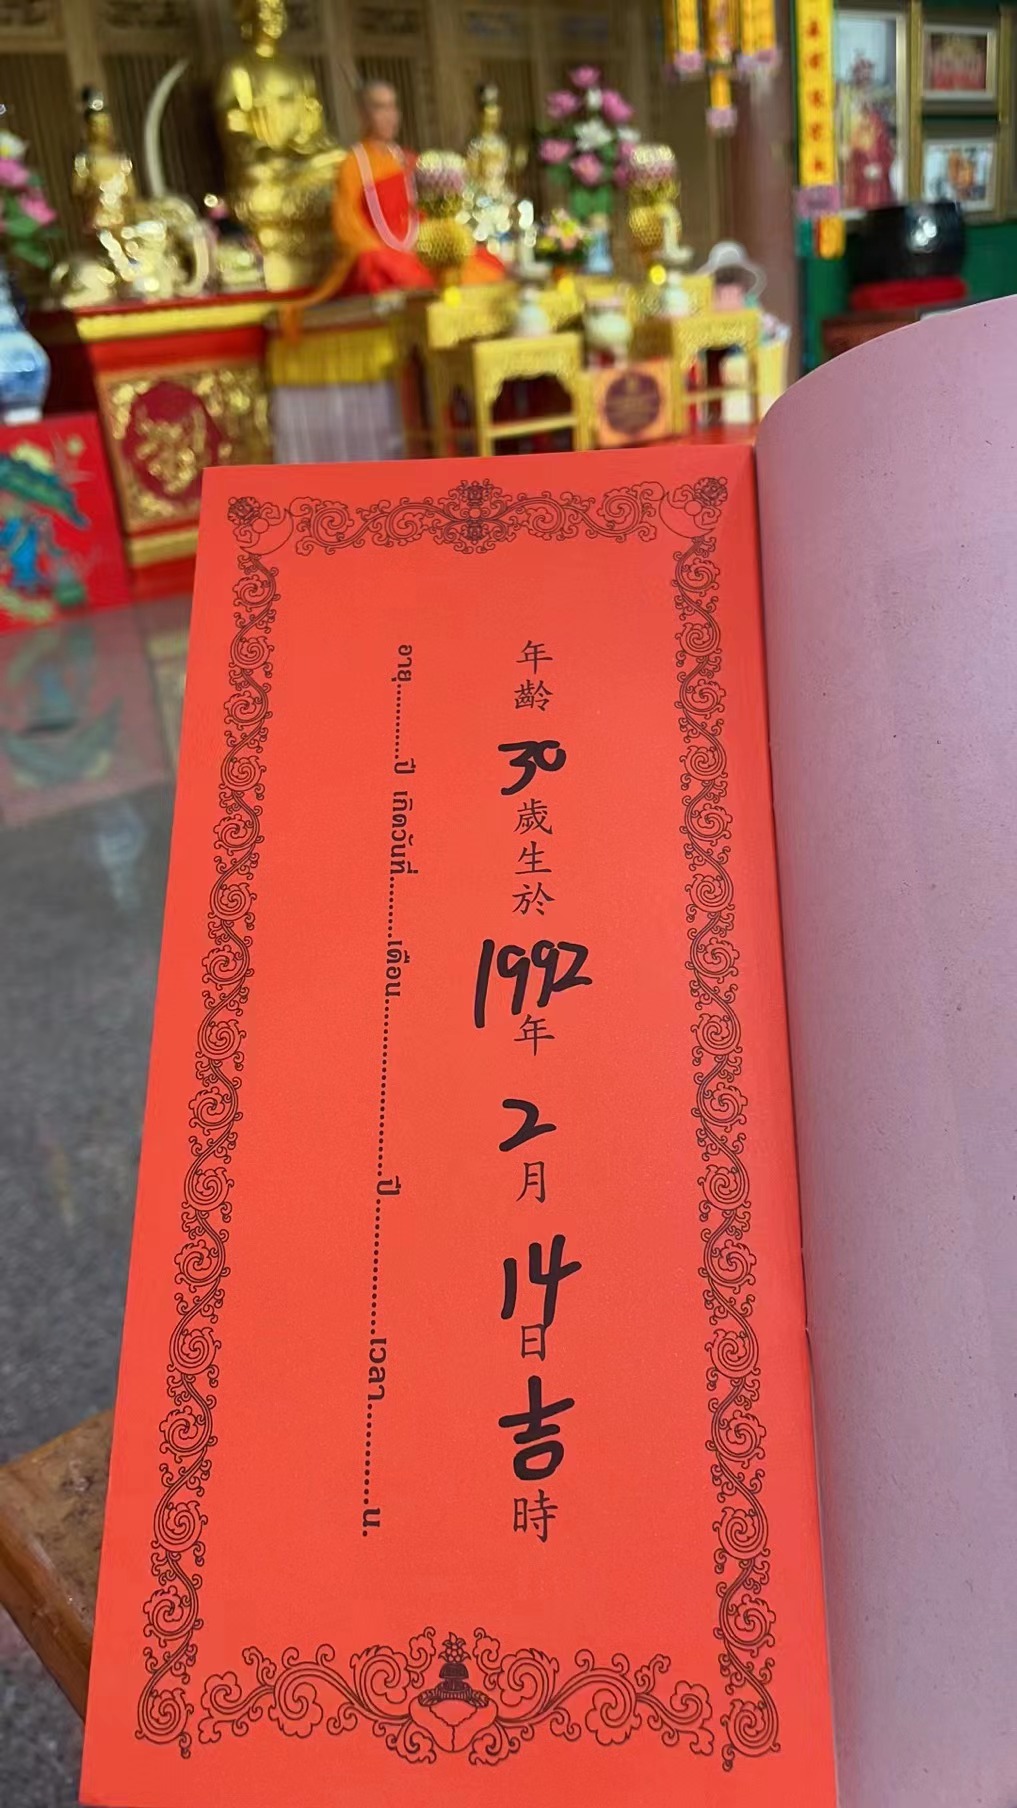 年齡 30 歲生於 1992 年 2 月 14 日 吉 時
อายุ............ปี เกิดวันที่............เดือน................................ปี........................เวลา..................น.